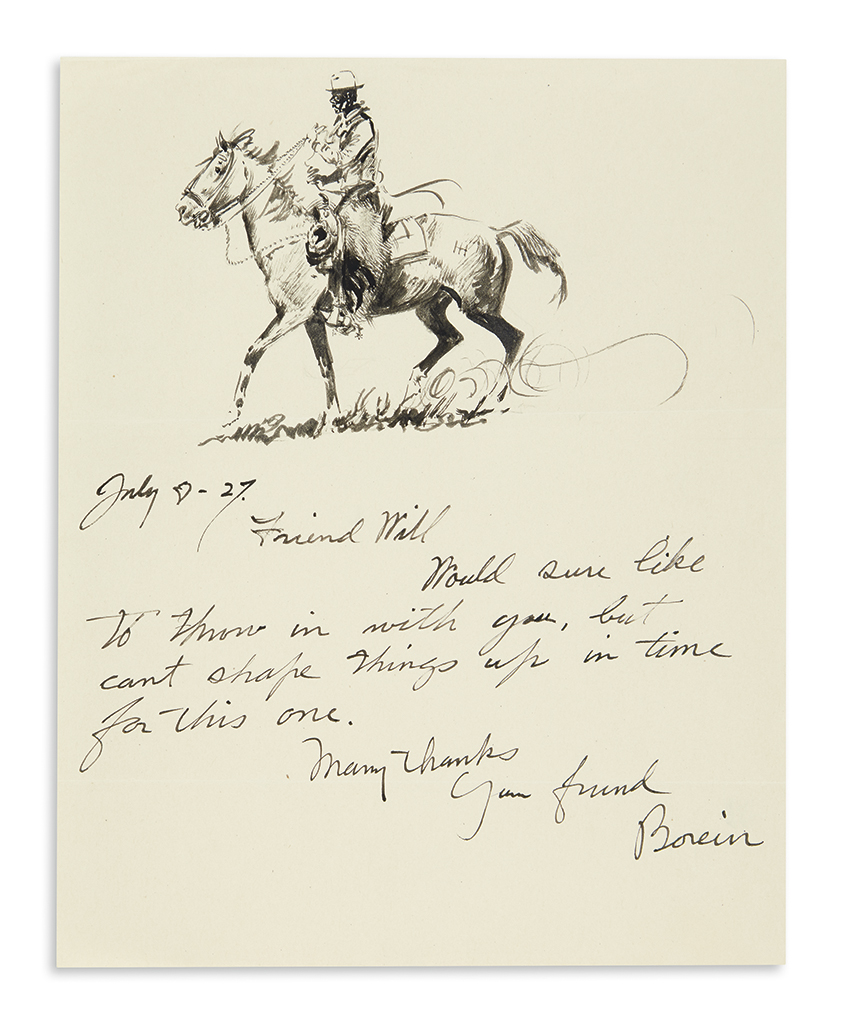 July 8 - 27.
Friend Will
Would sure like
to throw in with you, but
cant shape things up in time
for this one.
Many thanks
Your friend
Borein